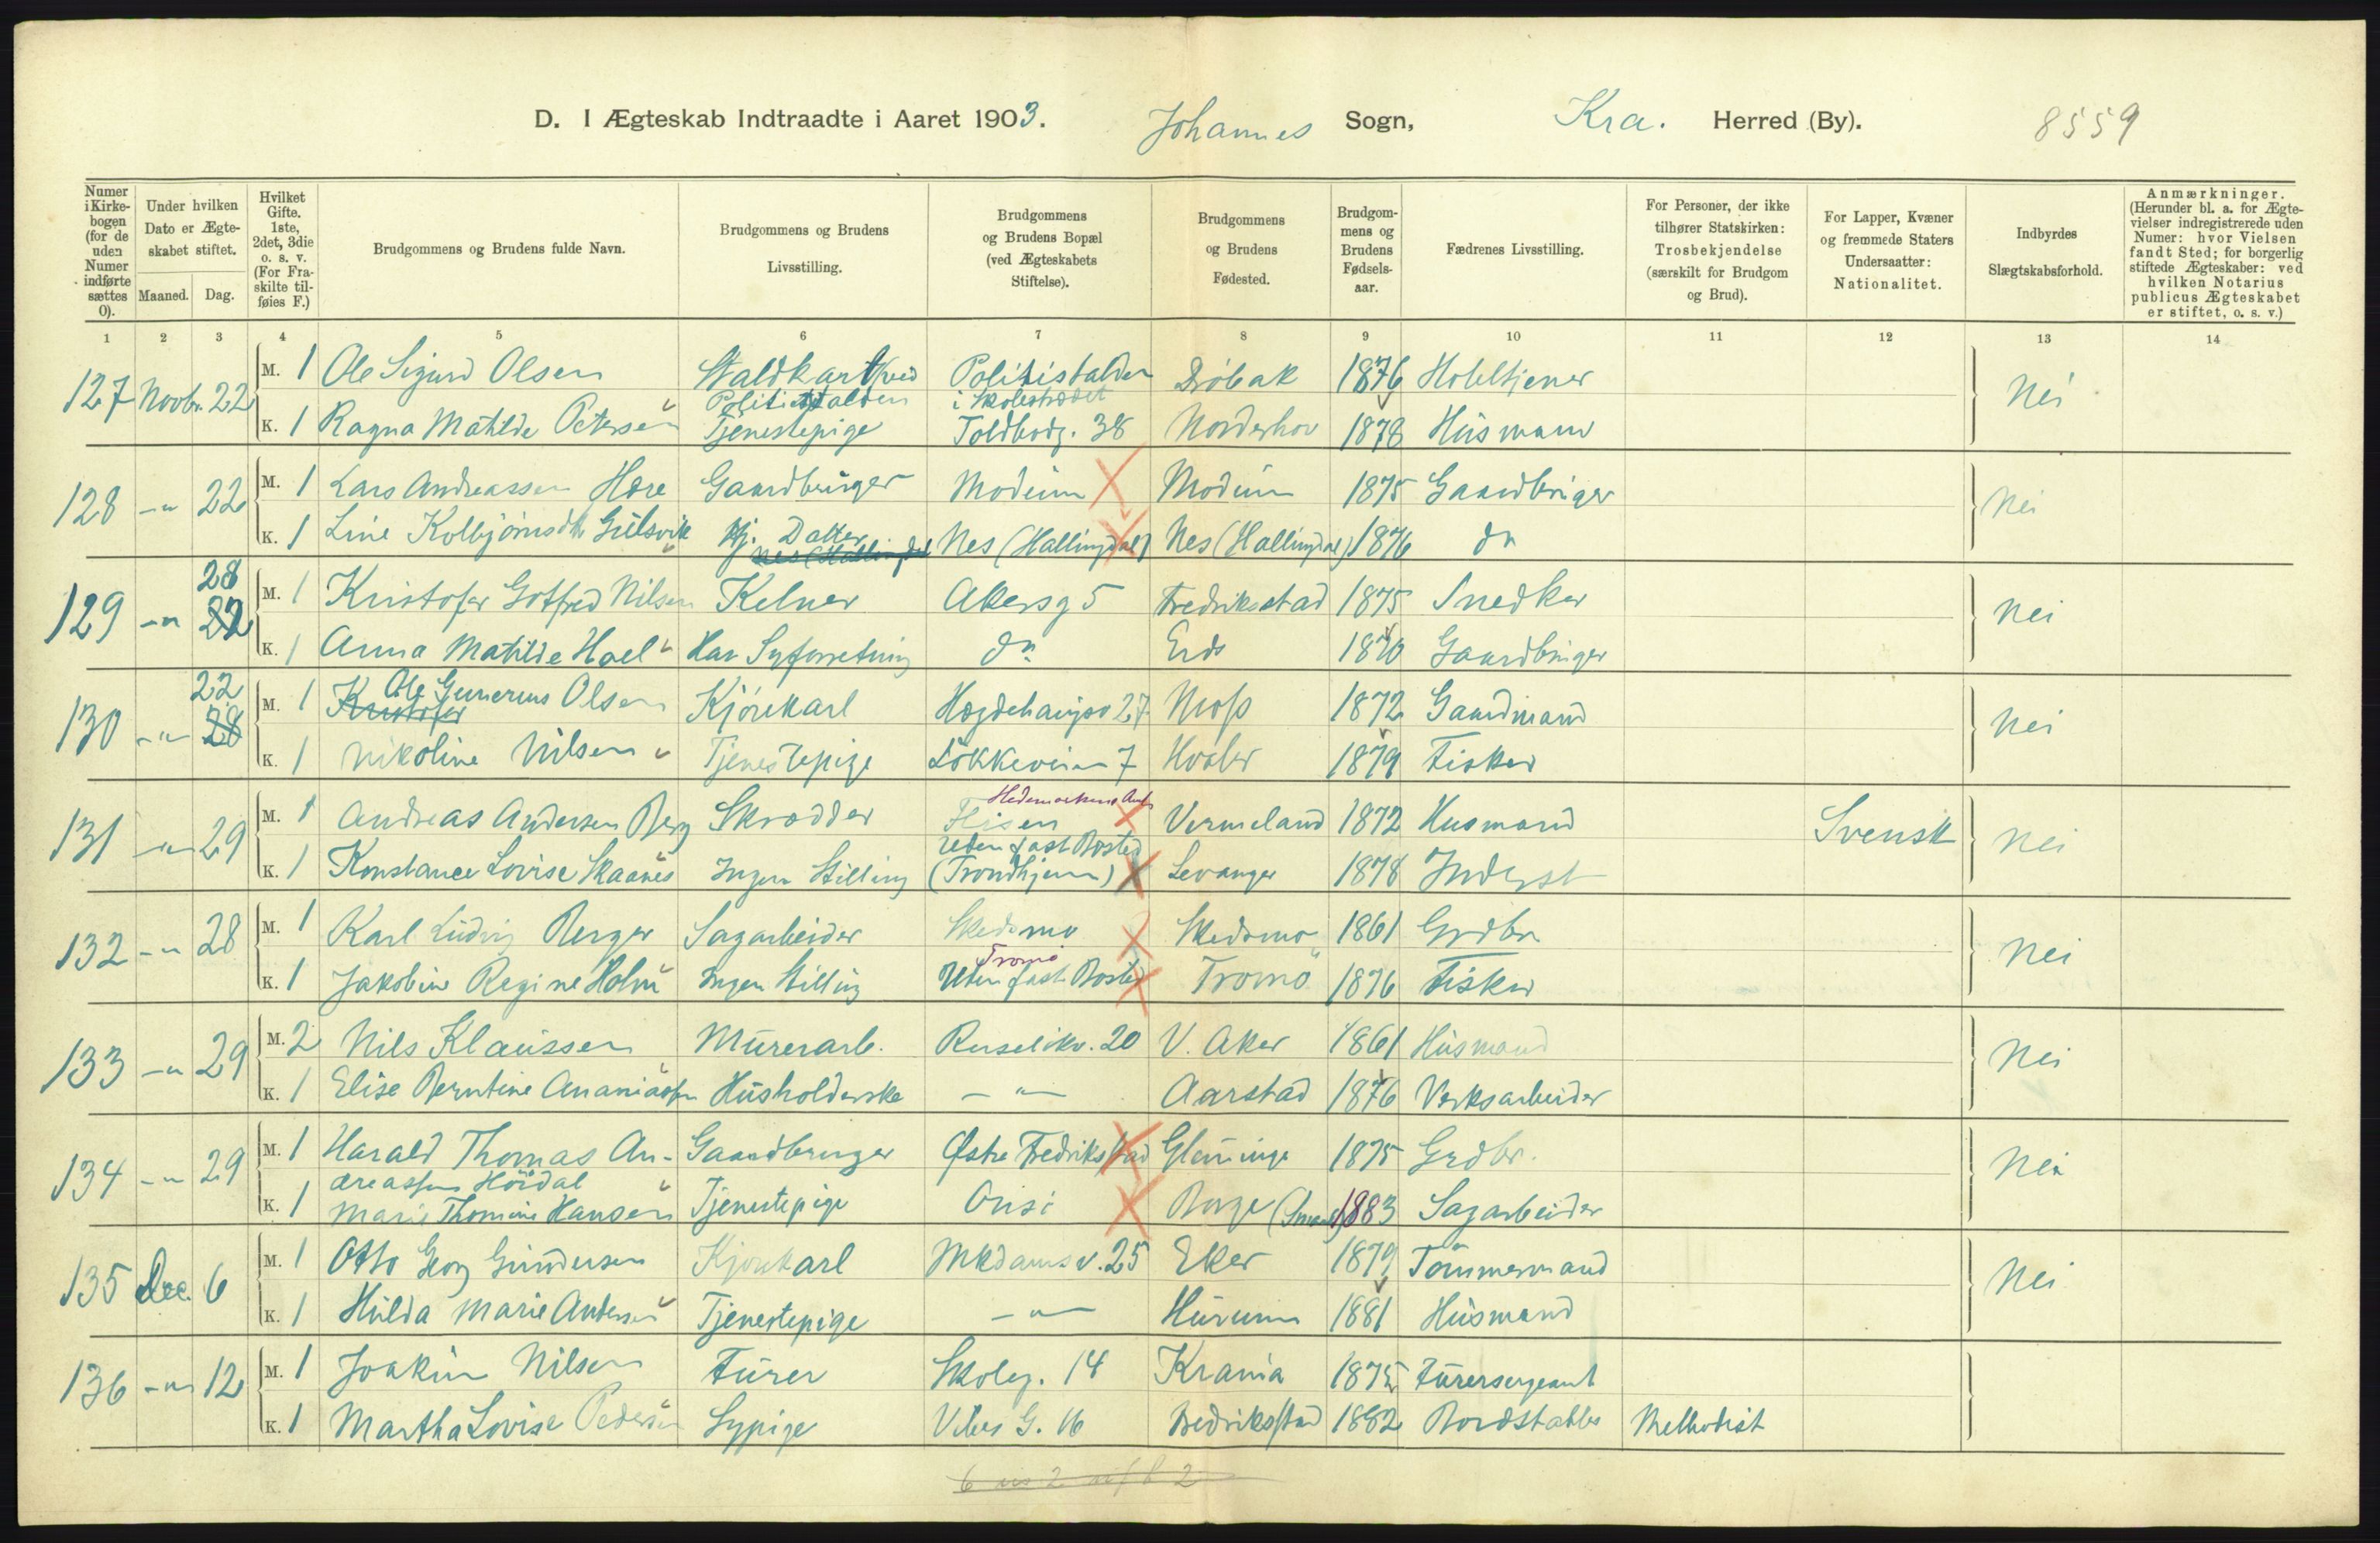 D. I Ægteskab Indtraadte i Aaret 1903. Johannes Sogn, Kra. Herred (By). 8559
Numer i Kirkebogen (for de uden Numer indførte sættes 0).
Under hvilken Dato er Ægteskabet stiftet.
Maaned. Dag.
Hvilket Gifte. 1ste, 2det, 3die o. s. v. (For Fraskilte tilføies F.)
Brudgommens og Brudens fulde Navn.
Brudgommens og Brudens Livsstilling.
Brudgommens og Brudens Bopæl (ved Ægteskabets Stiftelse).
Brudgommens og Brudens Fødested.
Brudgommens og Brudens Fødselsaar.
Fædrenes Livsstilling.
For Personer, der ikke tilhører Statskirken: Trosbekjendelse (særskilt for Brudgom og Brud).
For Lapper, Kvæner og fremmede Staters Undersaatter: Nationalitet.
Indbyrdes Slægtskabsforhold.
Anmærkninger. (Herunder bl. a. for Ægtevielser indregistrerede uden Numer: hvor Vielsen fandt Sted; for borgerlig stiftede Ægteskaber: ved hvilken Notarius publicus Ægteskabet er stiftet, o. s. v.)
1 2 3 4 5 6 7 8 9 10 11 12 13 14
127 Novbr. 22 M. 1 Ole Sigurd Olsen Staldkarl ved Politistalden Politistalden i Skolestrædet Drøbak 1876 Hoteltjener Nei
K. 1 Ragna Matilde Petersen Tjenestepige Toldbodg. 38 Norderhov 1878 Husmand
128 -"- 22 M. 1 Lars Andreassen Hære Gaardbruger Modum Modum 1875 Gaardbruger Nei
K. 1 Line Kolbjørnsdtr Gulsvik Hj. Datter Nes (Hallingdal) Nes (Hallingdal) 1876 do
129 -"- 28 22 M. 1 Kristofer Gotfred Nilsen Kelner Akersg 5 Fredriksstad 1875 Snedker Nei
K. 1 Anna Matilde Hoel Har Syforretning do Eids 1870 Gaardbruger
130 -"- 22 28 M. 1 Kristofer Ole Gunerius Olsen Kjørekarl Hegdehaugsv 27 Moss 1872 Gaardmand Nei
K. 1 Nikoline Nilsen Tjenestepige Løkkeveien 7 Hvaler 1879 Fisker
131 -"- 29 M. 1 Andreas Andersen Berg Skrædder Hedemarkens Amt Flisen Vermeland 1872 Husmand Svensk Nei
K. 1 Konstance Lovise Skaanes Ingen Stilling Uden fast Bosted (Trondhjem) Levanger 1878 Inderst
132 -"- 28 M. 1 Karl Ludvig Berger Sagarbeider Skedsmo Skedsmo 1861 Grdbr. Nei
K. 1 Jakobine Regine Holm Ingen Stilling Tromø Uden fast Bosted Tromø 1876 Fisker
133 -"- 29 M. 2 Nils Klaussen Murerarb. Ruseløkv. 20 V. Aker 1861 Husmand Nei
K. 1 Elise Berntine Ananiasen Husholderske -"- Aarstad 1876 Verksarbeider
134 -"- 29 M. 1 Harald Thomas Andreassen Høidal Gaardbruger Østre Fredriksstad Glemminge 1875 Grdbr. Nei
K. 1 Marie Thomine Hansen Tjenestepige Onsø Borge 1883 Sagarbeider
135 Dec. 6 M. 1 Otto Georg Gundersen Kjørekarl Mkdamsv. 25 Eker 1879 Tømmermand Nei
K. 1 Hulda Marie Andersen Tjenestepige -"- Hurum 1881 Husmand
136 -"- 12 M. 1 Joakim Nilsen Furer Skoleg. 14 Krania 1875 Furersergeant
K. 1 Martha Lovise Pedersen Sypige Vibes G. 16 Fredriksstad 1882 Bordstabler Methodist